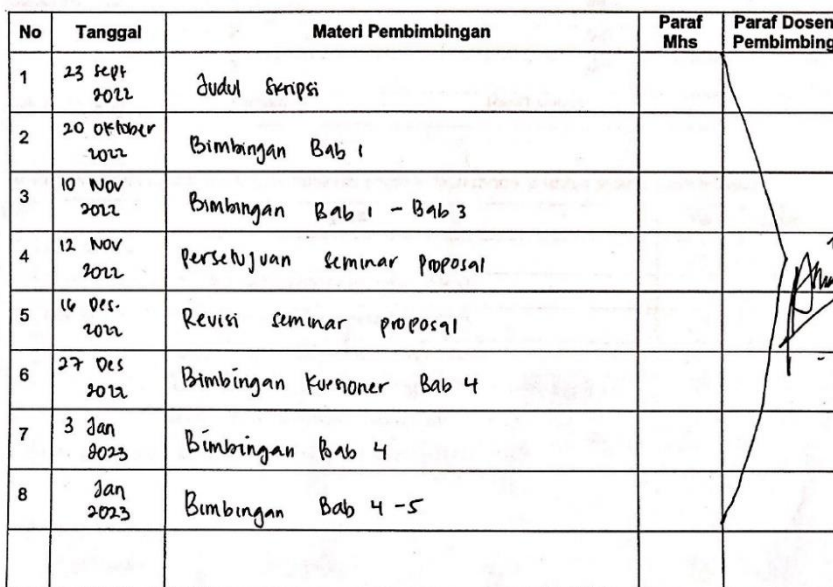 No Tanggal Materi Pembimbingan Paraf Mhs Paraf Dosen Pembimbing
1 23 Sept 2022 Judul Skripsi
2 20 Oktober 2022 Bimbingan Bab 1
3 10 Nov 2022 Bimbingan Bab 1 - Bab 3
4 12 Nov 2022 Persetujuan Seminar Proposal
5 16 Des. 2022 Revisi Seminar proposal
6 27 Des 2022 Bimbingan Kuesioner Bab 4
7 3 Jan 2023 Bimbingan Bab 4
8 Jan 2023 Bimbingan Bab 4 - 5